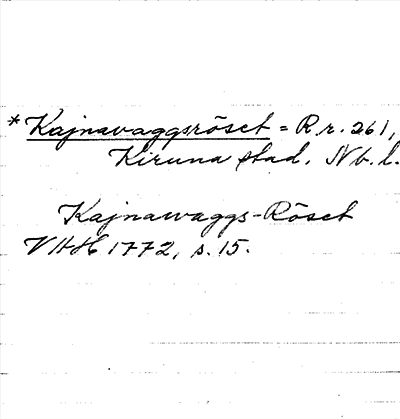 * Kajnavaggsröset = R.r. 261,
Kiruna stad. Nb. l.
Kajnawaggs-Röset
VHH 1772, s. 15.